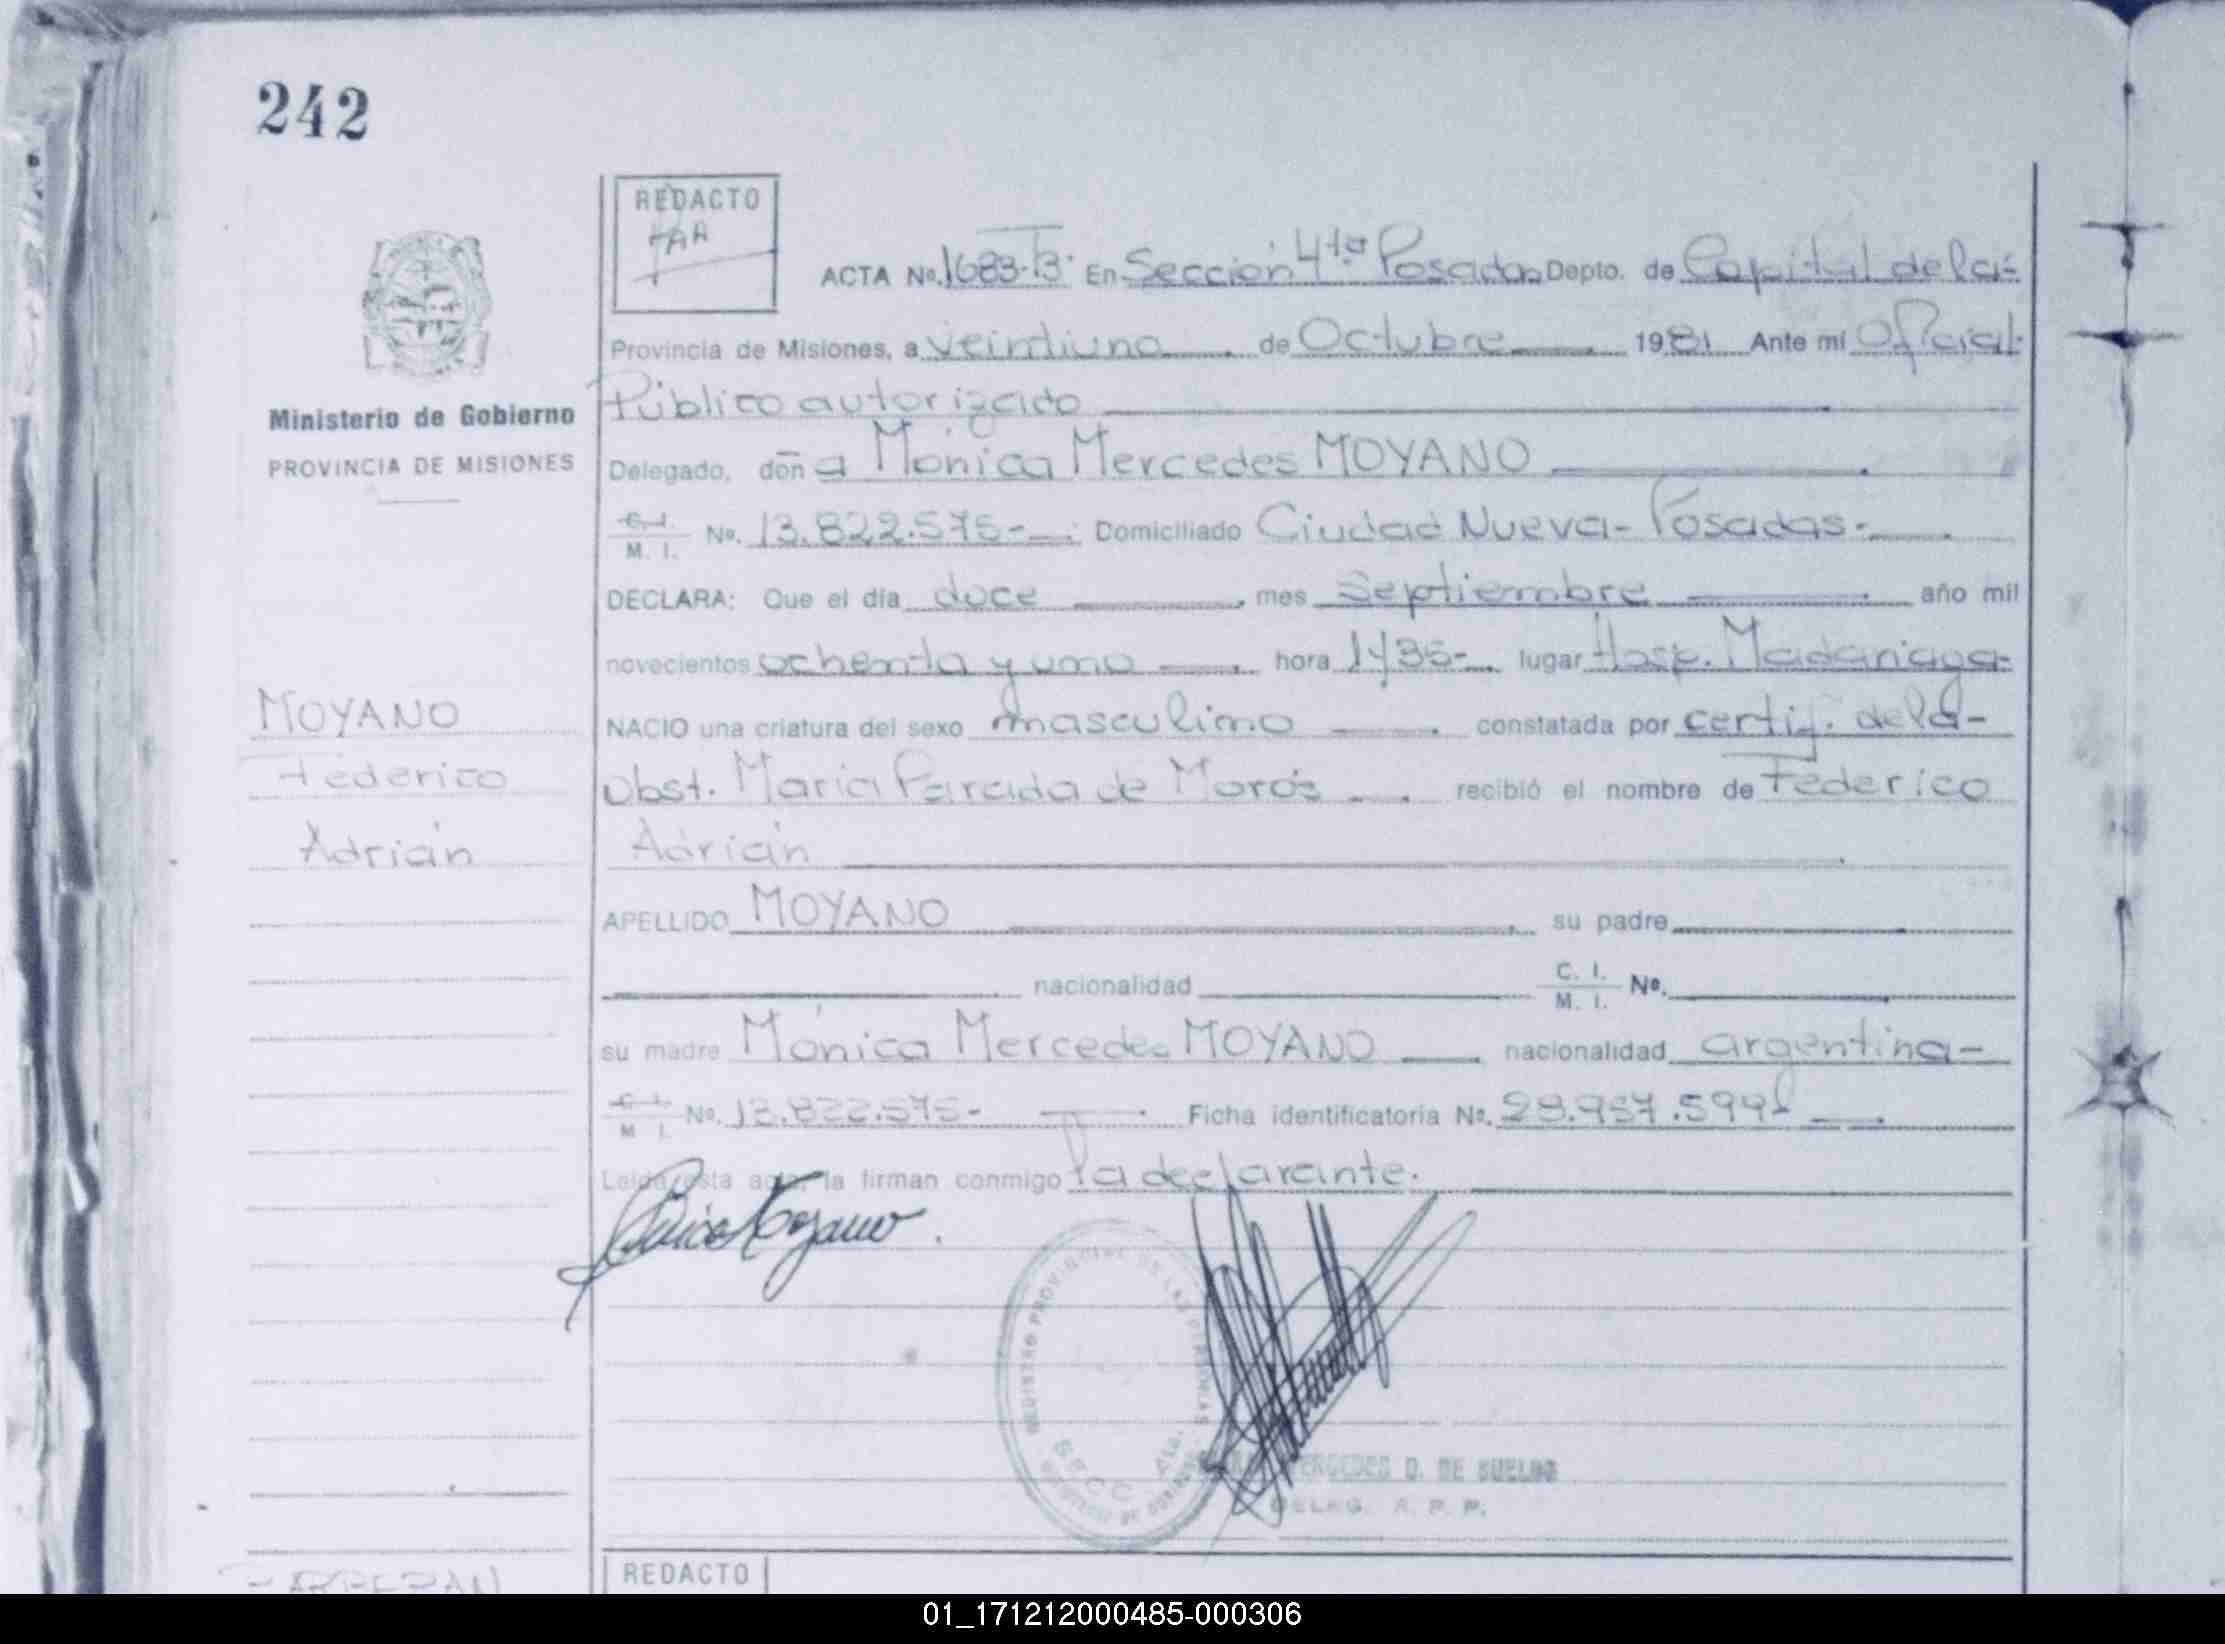 242
REDACTO
ACTA No. 1683-T3- En Sección 4ta Posadas Depto. de Capital de la-
Provincia de Misiones, a veintiuno de Octubre 1981 Ante mi Oficial
Ministerio de Gobierno
PROVINCIA DE MISIONES
Público autorizado
Delegado, doña Mónica Mercedes MOYANO
C. I. M. I. No. 13.822.575- Domiciliado Ciudad Nueva- Posadas-
DECLARA: Que el día doce mes Septiembre año mil
novecientos ochenta y uno hora lugar Hosp. Madariaga-
MOYANO
Federico
Adrián
NACIO una criatura del sexo masculino constatada por certif. de la-
Obst. María Parada de recibió el nombre de Federico
Adrián
APELLIDO MOYANO su padre
nacionalidad C. I. M. I. No.
su madre Mónica Mercedes MOYANO nacionalidad argentina-
C. I. M. I. No. 13.822.575- Ficha identificatoria No.
Leída esta acta, la firman conmigo la declarante.
REGISTRO PROVINCIAL DE LAS PERSONAS
SECC. 4ta.
MERCEDES D. DE
DELEG. A. P. P.
REDACTO
01_171212000485-000306